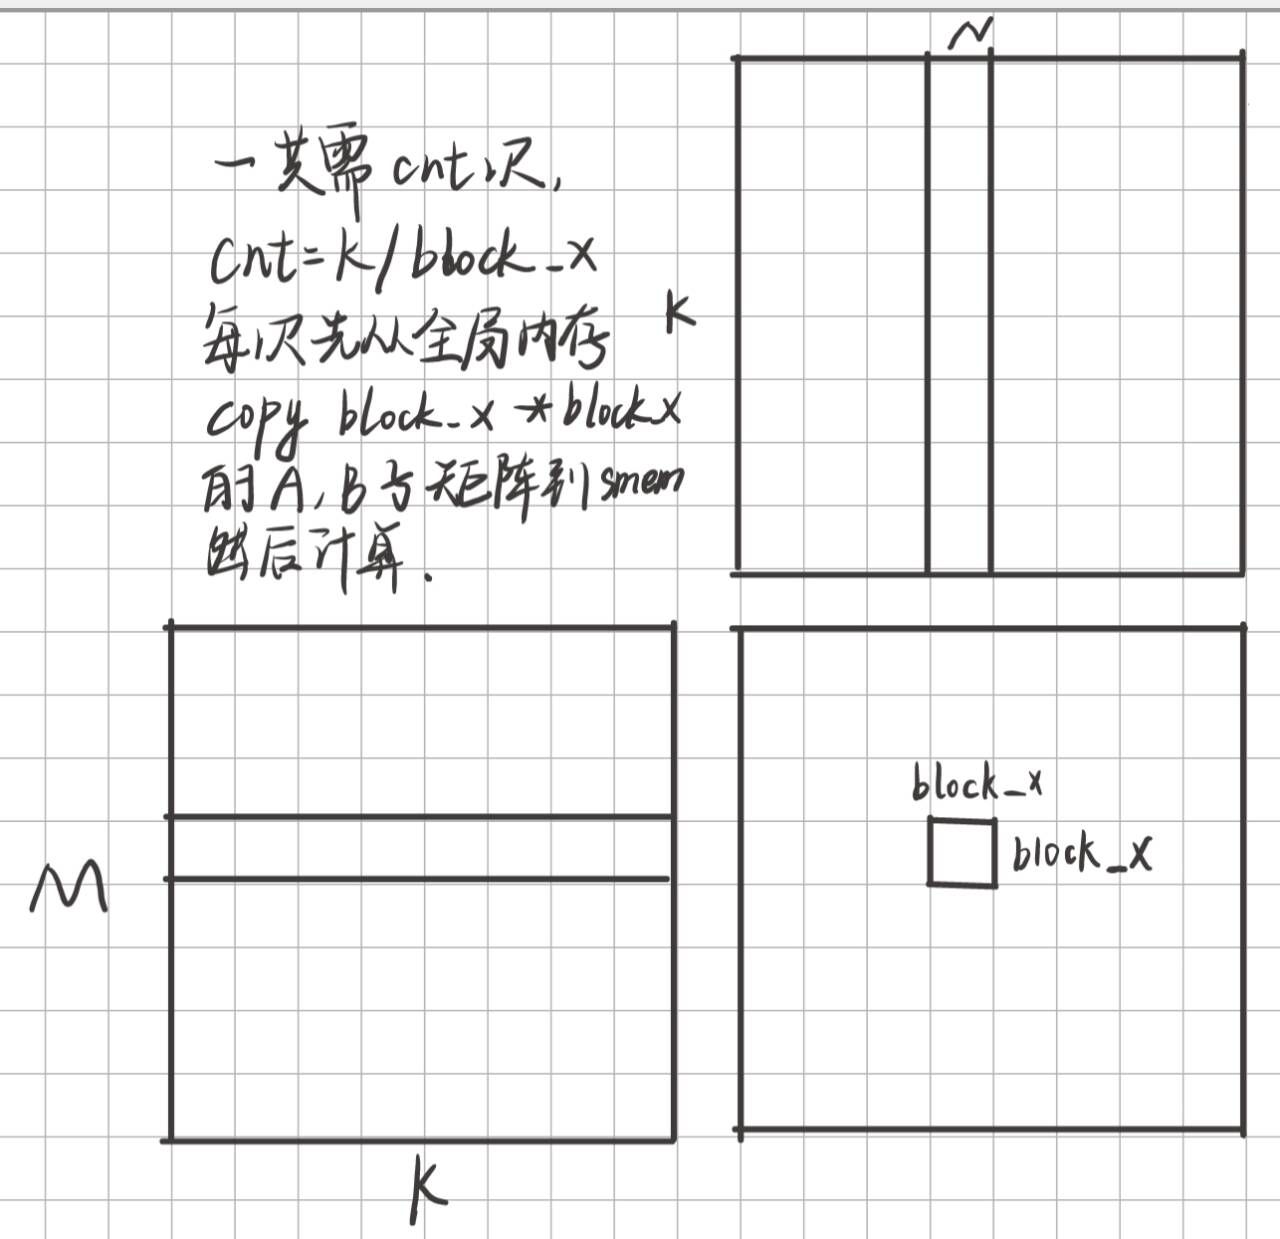 N
一共需 cnt次,
cnt=k/block_x
每次先从全局内存
k
copy block_x *block_x
的A,B子矩阵到smem
然后计算.
block_x
block_x
M
k